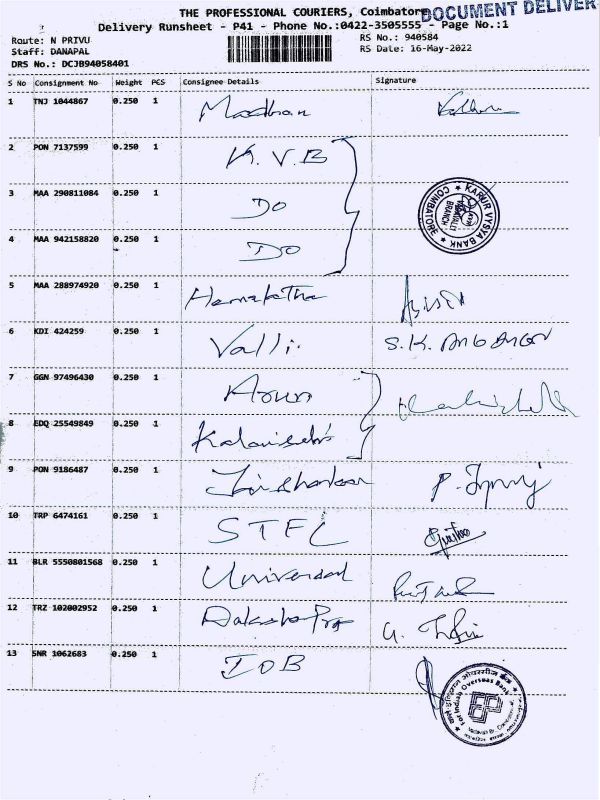 THE PROFESSIONAL COURIERS, Coimbatore
DOCUMENT DELIVER
Delivery Runsheet - P41 - Phone No.:0422-3505555 - Page No.:1
Route: N PRIVU
RS No.: 940584
Staff: DANAPAL
RS Date: 16-May-2022
DRS No.: DCJB94058401
S No Consignment No Weight PCS Consignee Details Signature
1 TNJ 1044867 0.250 1 Madhan
2 PON 7137599 0.250 1 K.V.B
3 MAA 290811084 0.250 1 Do
4 MAA 942158820 0.250 1 Do
KARUR VYSYA BANK
BRANCH
COIMBATORE
5 MAA 288974920 0.250 1 Hemalatha
6 KDI 424259 0.250 1 Valli. S.K.
7 GGN 97496430 0.250 1 Arun
8 EDQ 25549849 0.250 1
9 PON 9186487 0.250 1 P.
10 TRP 6474161 0.250 1 STEL
11 BLR 5550801568 0.250 1 Universal
12 TRZ 102002952 0.250 1 G.
13 SNR 1062683 0.250 1 IOB
For Indian Overseas Bank